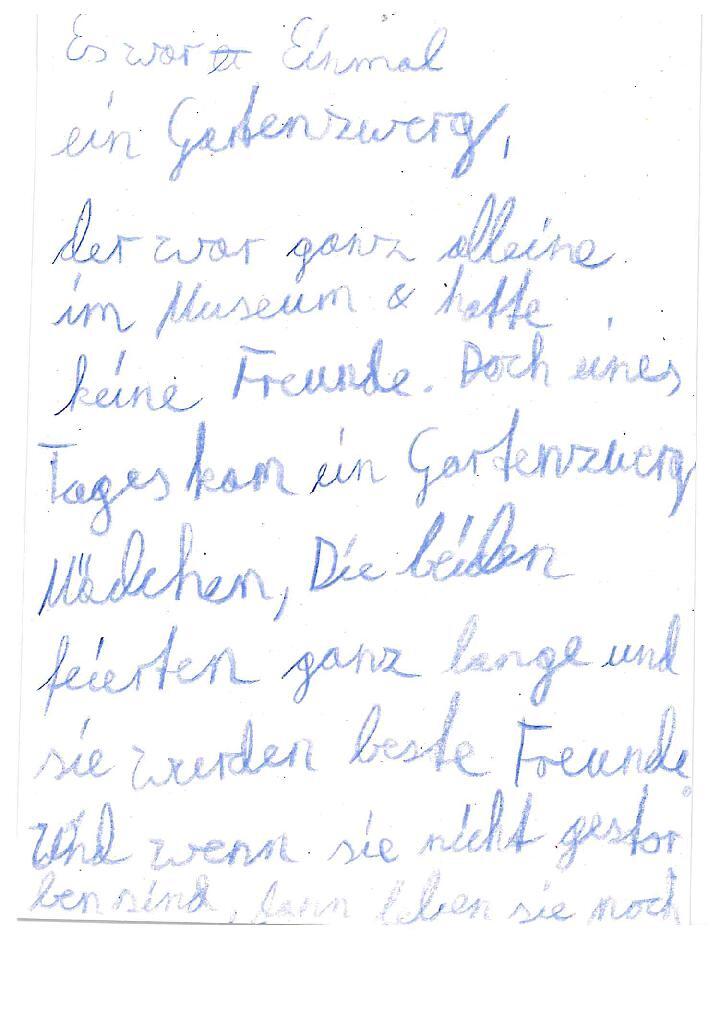 Es war Einmal
ein Gartenzwerg,
der war ganz alleine
im Museum & hatte
keine Freunde. Doch eines
Tages kam ein Gartenzwerg
Mädchen, Die beiden
feierten ganz lange und
sie wurden beste Freunde
und wenn sie nicht gestor
ben sind, dann leben sie noch